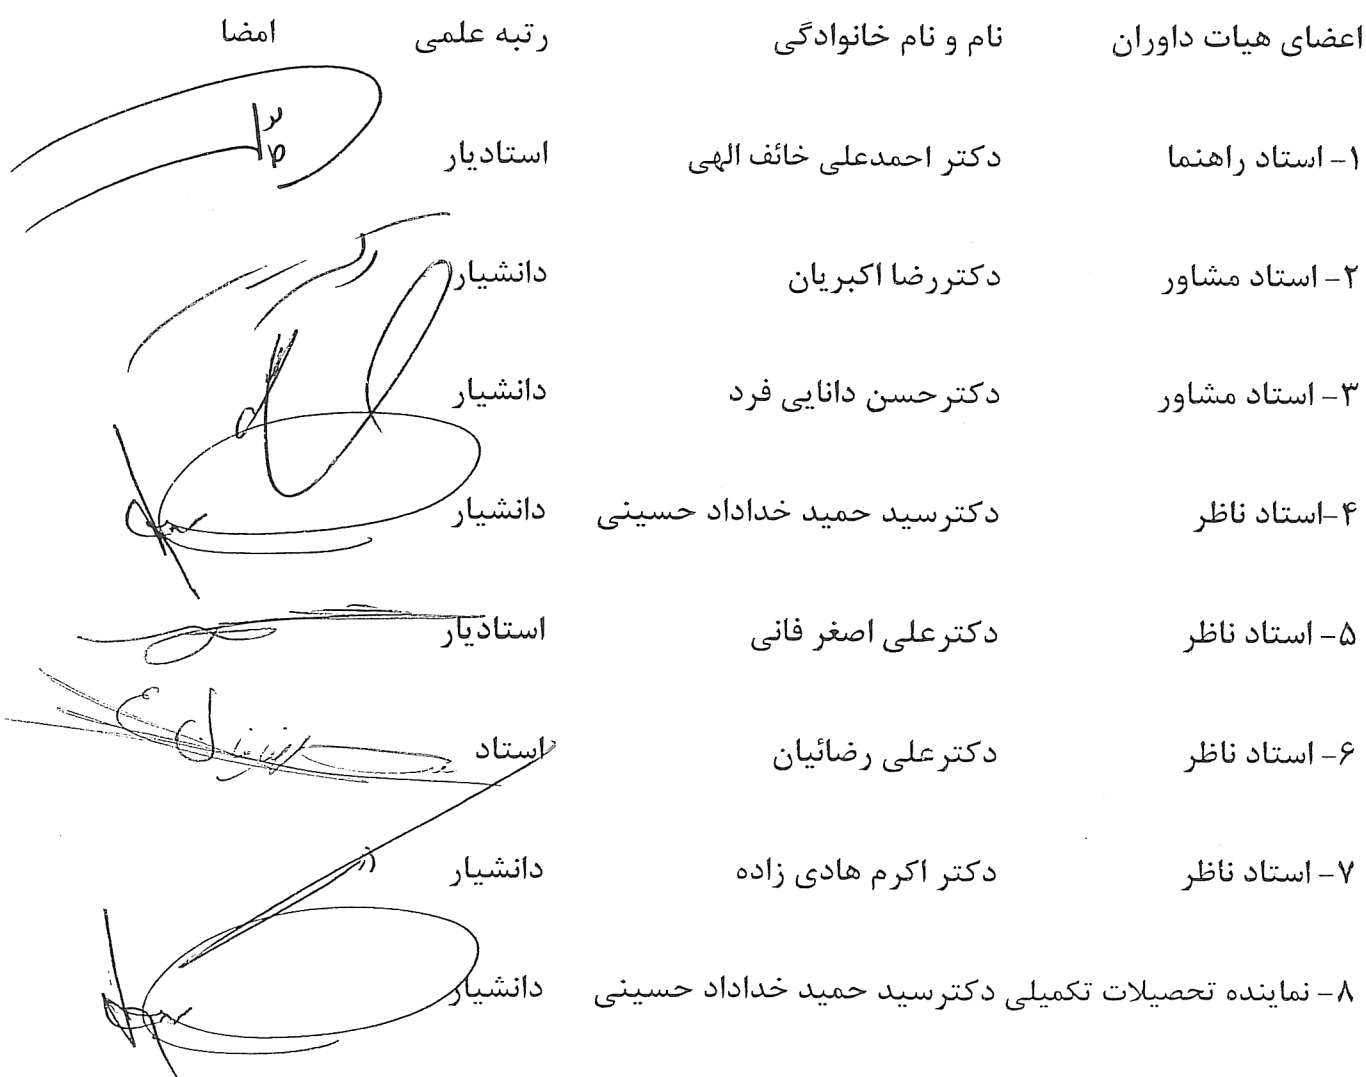 اعضای هیات داوران نام و نام خانوادگی رتبه علمی امضا
۱- استاد راهنما دکتر احمدعلی خائف الهی استادیار
۲- استاد مشاور دکتررضا اکبریان دانشیار
۳- استاد مشاور دکترحسن دانایی فرد دانشیار
۴-استاد ناظر دکترسید حمید خداداد حسینی دانشیار
۵- استاد ناظر دکترعلی اصغر فانی استادیار
۶- استاد ناظر دکترعلی رضائیان استاد
۷- استاد ناظر دکتر اکرم هادی زاده دانشیار
۸- نماینده تحصیلات تکمیلی دکترسید حمید خداداد حسینی دانشیار